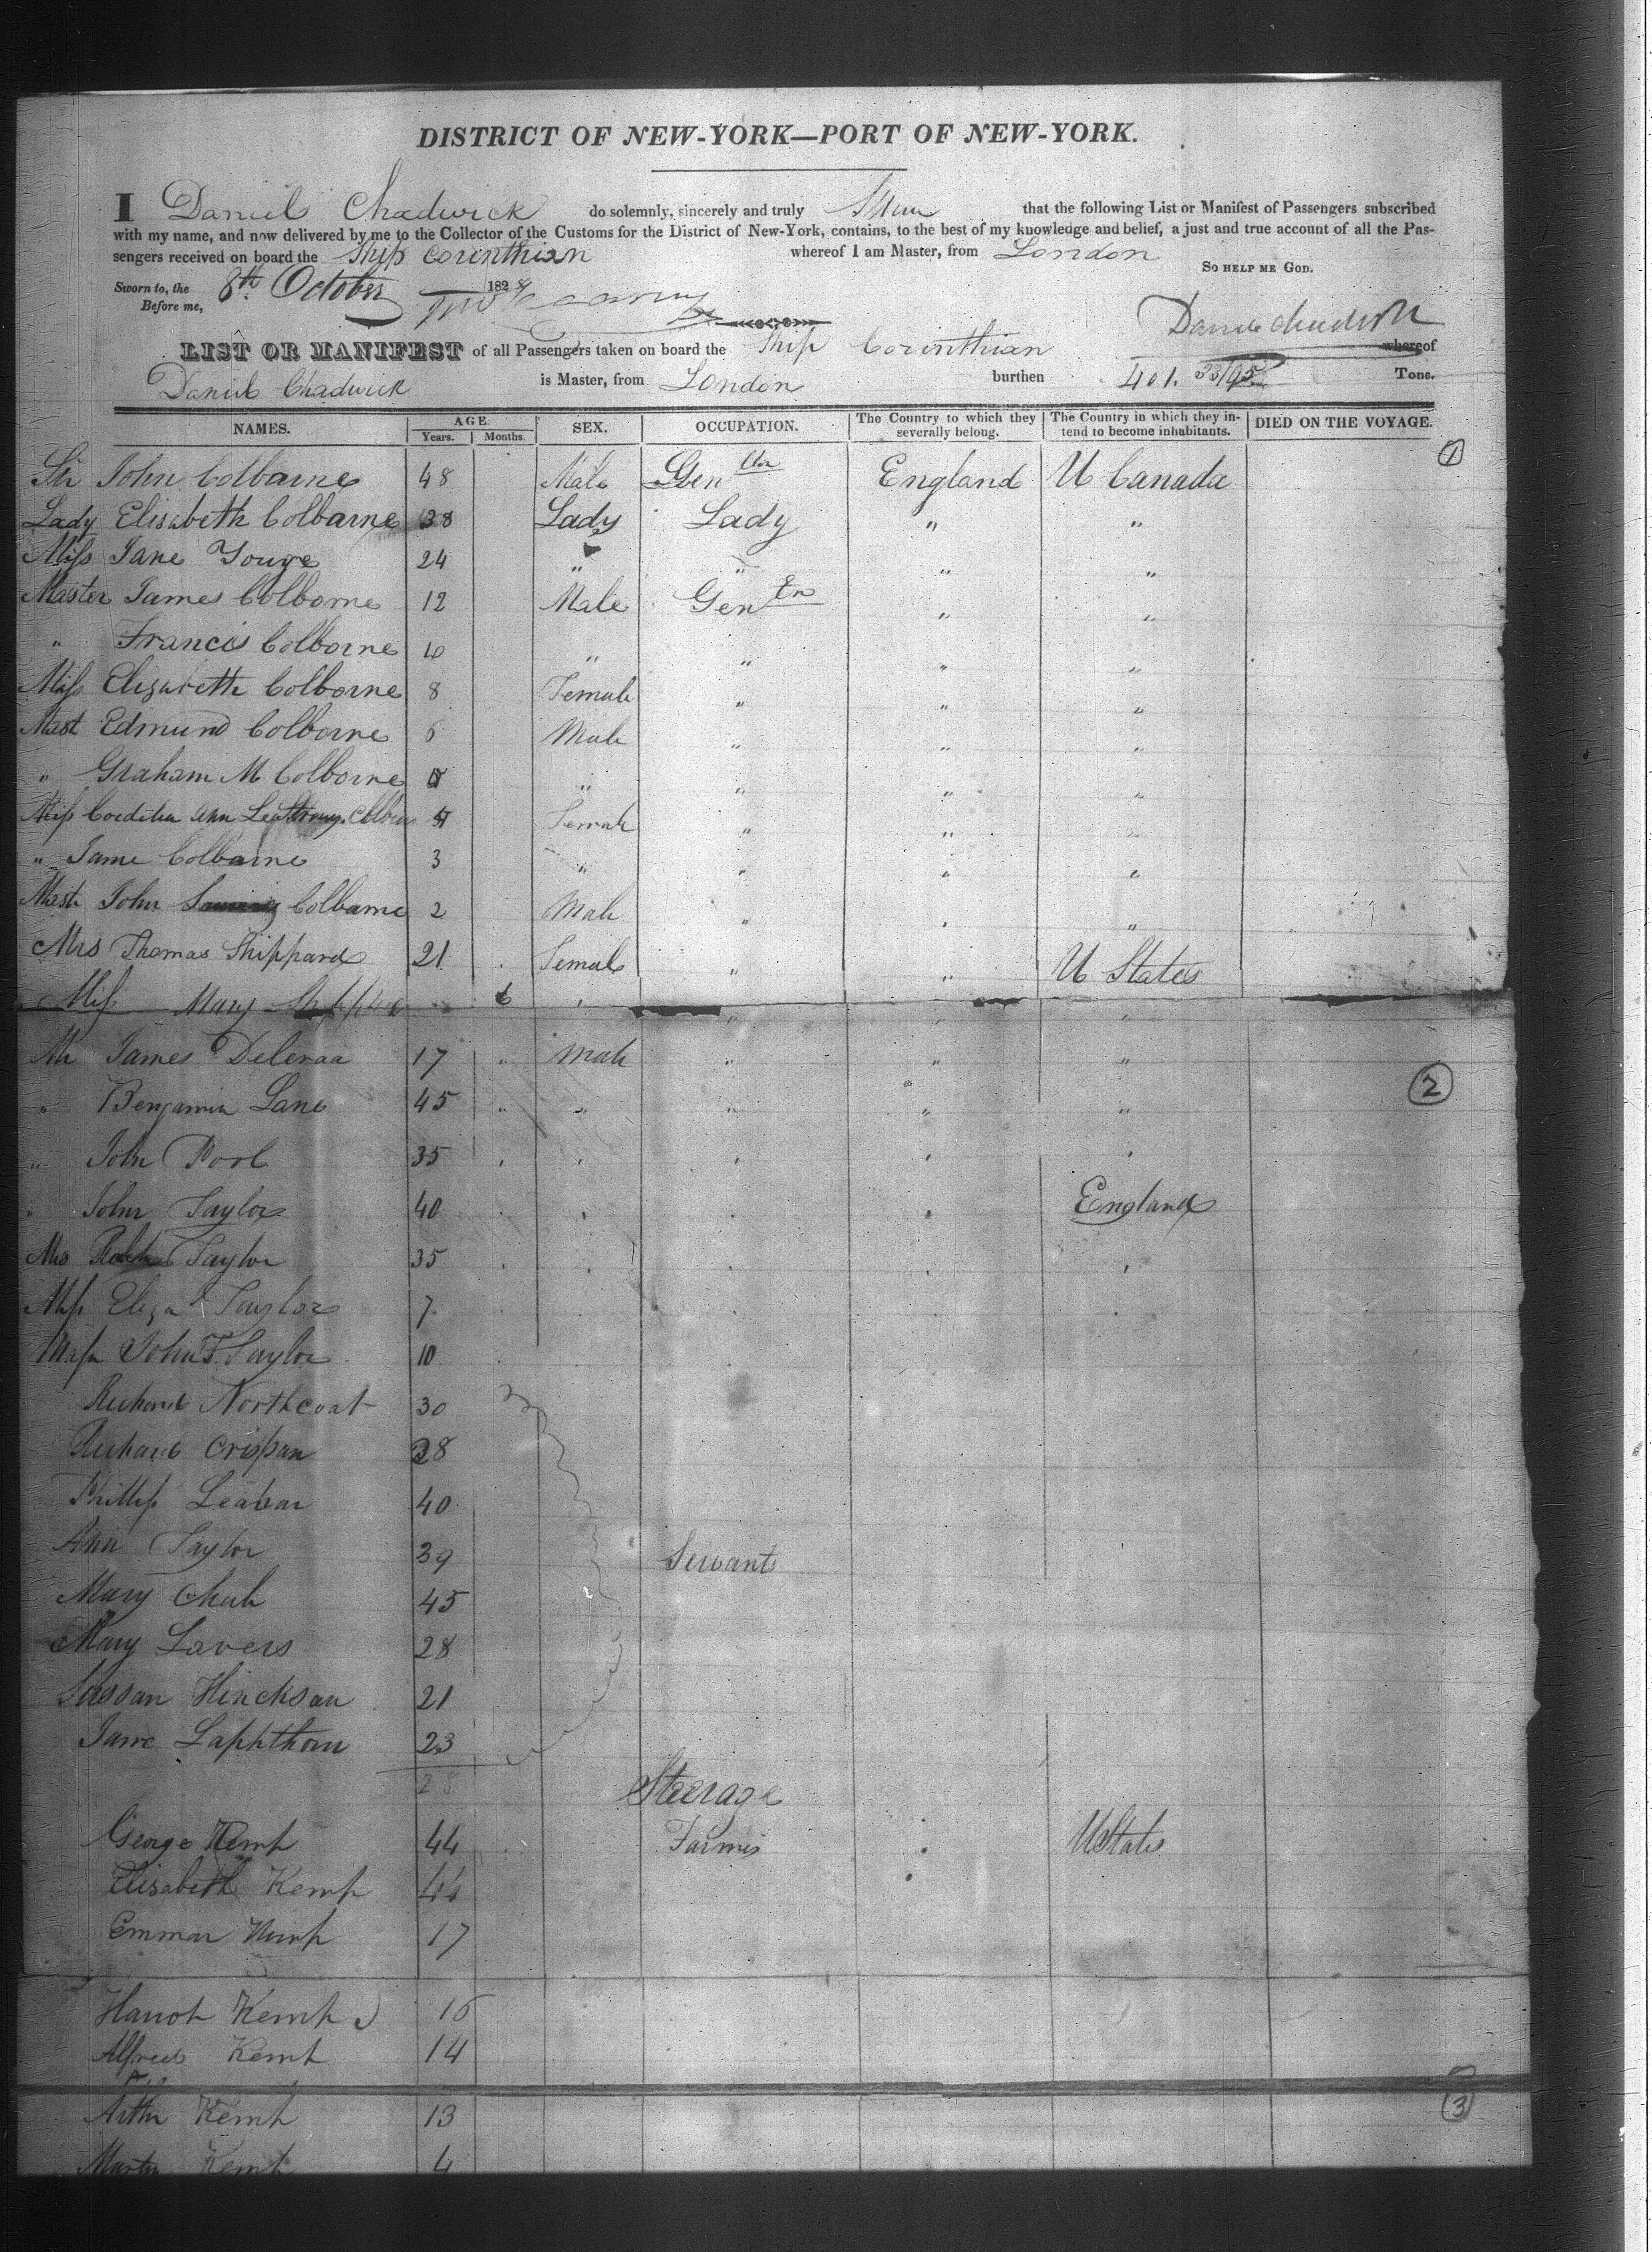 DISTRICT OF NEW-YORK—PORT OF NEW-YORK.
I Daniel Chadwick do solemnly, sincerely and truly that the following List or Manifest of Passengers subscribed
with my name, and now delivered by me to the Collector of the Customs for the District of New-York, contains, to the best of my knowledge and belief, a just and true account of all the Pas-
sengers received on board the Ship Corinthian whereof I am Master, from London
SO HELP ME GOD.
Sworn to, the 8th October 1828
Before me,
LIST OR MANIFEST of all Passengers taken on board the Ship Corinthian whereof
Daniel Chadwick is Master, from London burthen 401. 33/95 Tons.
NAMES. AGE. Years. Months. SEX. OCCUPATION. The Country to which they severally belong. The Country in which they in-tend to become inhabitants. DIED ON THE VOYAGE.
1
Sir John Colborne 48 Male England U Canada
Lady Elisabeth Colborne 38 Lady Lady " "
Miss Jane Youge 24 " " " "
Master James Colborne 12 Male Gentn " "
" Francis Colborne 10 " " " "
Miss Elizabeth Colborne 8 Female " " "
Mast Edmund Colborne 6 Male " " "
" Graham M Colborne " " " "
Miss Ann Female " " "
" Jane Colborne 3 " " " "
Mast John Colborne 2 Male " " "
Mrs Thomas Shippard 21 Female " " U States
Miss Mary 6 " " " "
Mr James 17 " Male " " "
" Benjamin Lane 45 " " " " "
" John Pool 35 " " " " "
" John Taylor 40 " " " " England
Mrs Taylor 35 " " " " "
Miss Eliza Taylor 7
John T. Taylor 10
Richard Northcoat 30
Richard Crispan 28
Phillip 40
Ann Taylor 39 Servants
Mary Chub 45
Mary Lavers 28
Sussan Hincksan 21
Jane Lapthorn 23
28
Steerage
George Kemp 44 Farmer " U States
Elisabeth Kemp 44 "
Emmar Kemp 17
2
Hanoh Kemp 16
Alfred Kemp 14
Arthur Kemp 13
3
Kemp 4